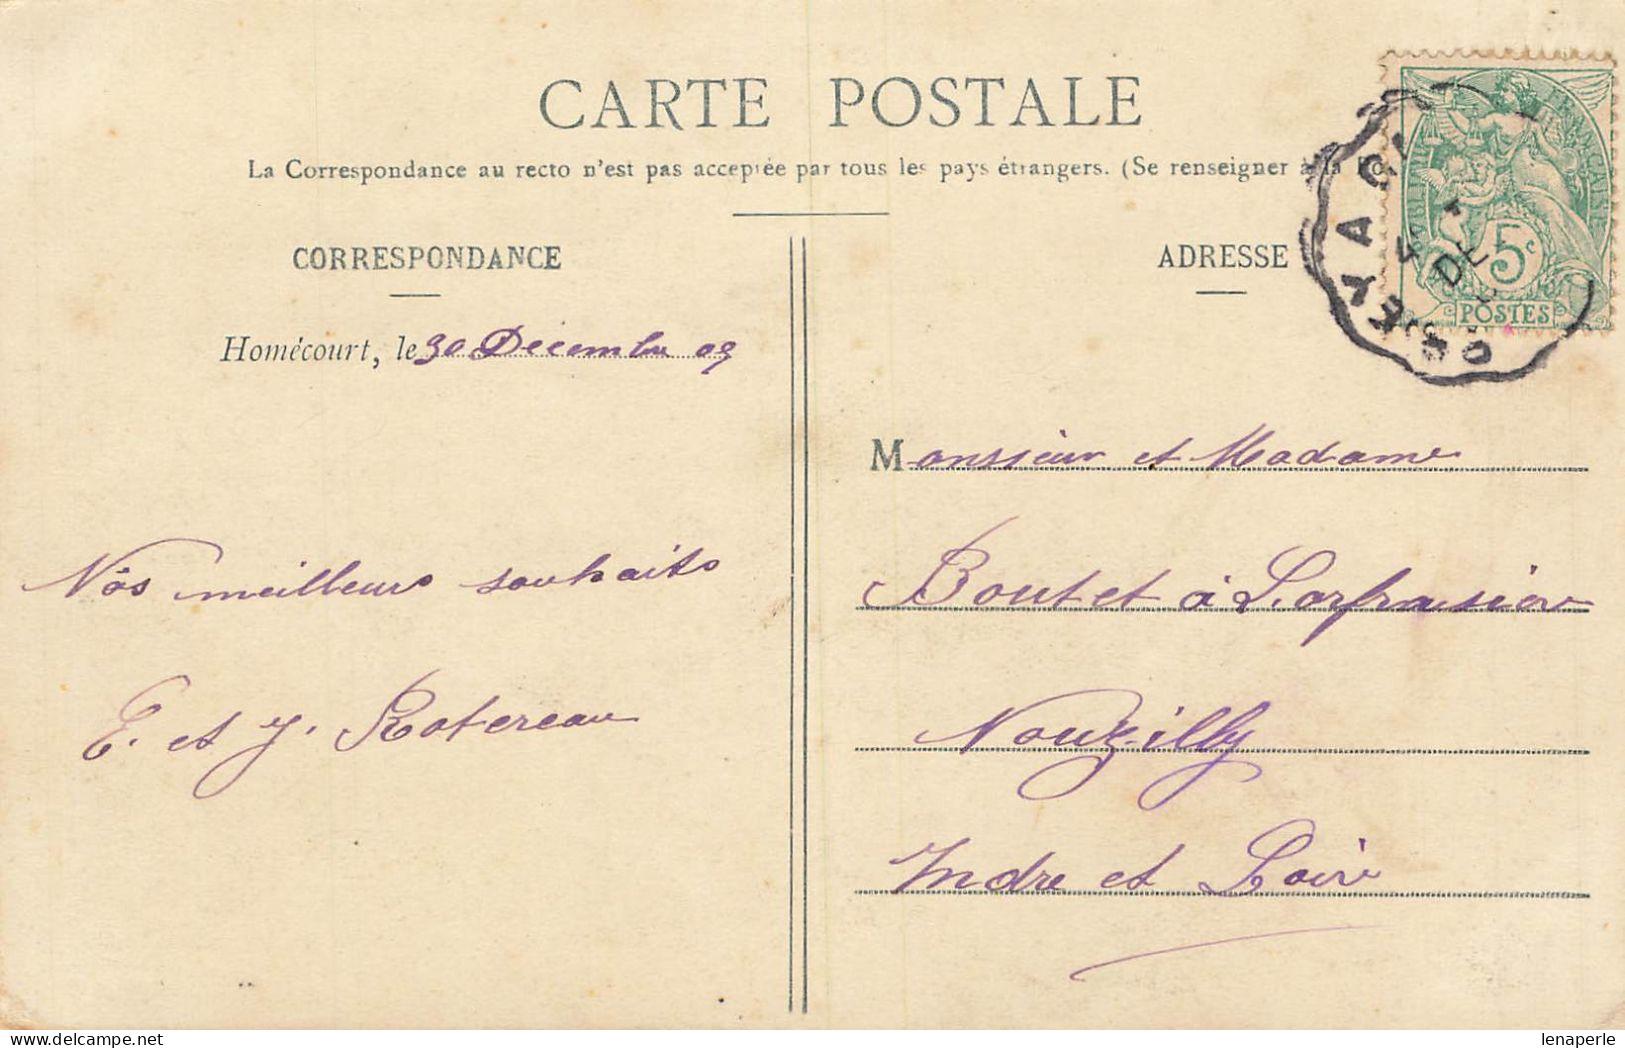 CARTE POSTALE
La Correspondance au recto n'est pas acceptée par tous les pays étrangers. (Se renseigner à la
CORRESPONDANCE
Homécourt, le 30 Décembre 09
Nos meilleurs souhaits
E. et J. Rotereau
ADRESSE
Monsieur et Madame
Boutet à
Nouzilly
Indre et Loire
5c
POSTES
lenaperle